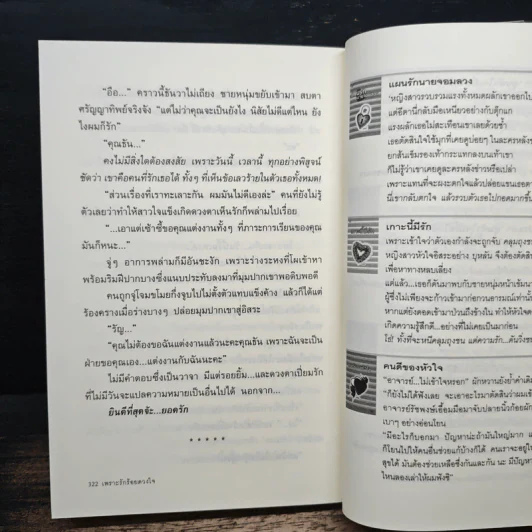 "อือ..." คราวนี้ธันวาไม่เถียง ชายหนุ่มขยับเข้ามา สบตา
ครัญญาทิพย์จริงจัง "แต่ไม่ว่าคุณจะเป็นยังไง นิสัยไม่ดีแค่ไหน ยัง
ไงผมก็รัก"
"คุณธัน..."
คงไม่มีสิ่งใดต้องสงสัย เพราะวันนี้ เวลานี้ ทุกอย่างพิสูจน์
ชัดว่า เขาคือคนที่รักเธอได้ ทั้งๆ ที่เห็นข้อเลวร้ายในตัวเธอทั้งหมด!
"ส่วนเรื่องที่เราทะเลาะกัน ผมมันไม่ดีเองล่ะ" คนที่ยังไม่รู้
ตัวเลยว่าทำให้สาวใจแข็งเกิดดวงตาเห็นรักก็พล่ามไปเรื่อย
"...เอาแต่เซ้าซี้ขอคุณแต่งงาน ทั้งๆ ที่ภาระการเรียนของคุณ
มันก็หนะ..."
จู่ๆ อาการพล่ามก็มีอันชะงัก เพราะร่างระหงที่โผเข้าหา
พร้อมริมฝีปากบางซึ่งแนบประทับลงมาที่มุมปากเขาพอดิบพอดี
คนถูกจู่โจมขโมยกึ่งจูบไปไม่ตั้งตัวแทบแข็งค้าง แล้วก็ได้แต่
ร้องครางเมื่อร่างบางๆ ปล่อยมุมปากเขาสู่อิสระ
"รัญ..."
"คุณไม่ต้องขอฉันแต่งงานแล้วนะคะคุณธัน เพราะฉันจะเป็น
ฝ่ายขอคุณเอง...แต่งงานกับฉันนะคะ"
ไม่มีคำตอบซึ่งเป็นวาจา มีแต่รอยยิ้ม...และดวงตาเปี่ยมรัก
ที่ไม่มีวันจะแปลความหมายเป็นอื่นไปได้ นอกจาก...
ยินดีที่สุดจ้ะ...ยอดรัก
* * * * *
322 เพราะรักร้อยดวงใจ
แผนรักนายจอมลวง
'หญิงสาวรวบรวมแรงทั้งหมดผลักเขาออกไป
แต่อีตานี่กลับมือเหนียวอย่างตุ๊กแก
แรงผลักเธอไม่สะเทือนเขาเลยด้วยซ้ำ
เธอตัดสินใจใช้มุกที่เคยดูบ่อยๆ ในละครหลัง
ยกส้นเข็มรองเท้ากระแทกลงบนเท้าเขา
ก็ไม่รู้ว่าเขาเคยดูละครหลังข่าวหรือเปล่า
เพราะแทนที่จะผงะตกใจแล้วปล่อยแขนเธอ
นี่เขากลับตกใจ แล้วรวบตัวเธอไปกอด
เกาะนี้มีรัก
เพราะเข้าใจว่าตัวเองกำลังจะถูกจับ คลุมถุงชน
หญิงสาวหัวใจอิสระอย่าง บุหลัน จึงต้อง
เพื่อหาทางหลบเลี่ยง
แต่แล้ว...เธอก็ดันมาพบกับชายหนุ่มหน้า
ผู้ซึ่งไม่เพียงก้าวเข้ามาก่อกวนอารมณ์
หากแต่ยังตอดเข้ามาป่วนถึงข้างใน ทำให้หัวใจ
เกิดความรู้สึกดี...อย่างที่ไม่เคยเป็นมาก่อน
โธ่! ทั้งที่จะหนีคลุมถุงชน แต่ความรัก...
คนดีของหัวใจ
"อาจารย์...ไม่เข้าใจหรอก" ผักหวานยังย้ำคำเดิม
"ก็ยังไม่ได้ฟังเลย จะเอาอะไรมาตัดสินว่า
อาจารย์รัชพงษ์เอื้อมมือมาจับปลายนิ้วก้อย
เบาๆ อย่างอ่อนโยน
"มีอะไรก็บอกมา ปัญหาน่ะถ้ามันใหญ่มาก
ก็โยนไปให้คนอื่นช่วยแก้บ้างก็ได้ คนเราจะอยู่
สุขได้ มันต้องช่วยเหลือซึ่งกันและกัน นะ มีปัญหา
ไหนลองเล่าให้ผมฟังซิ"